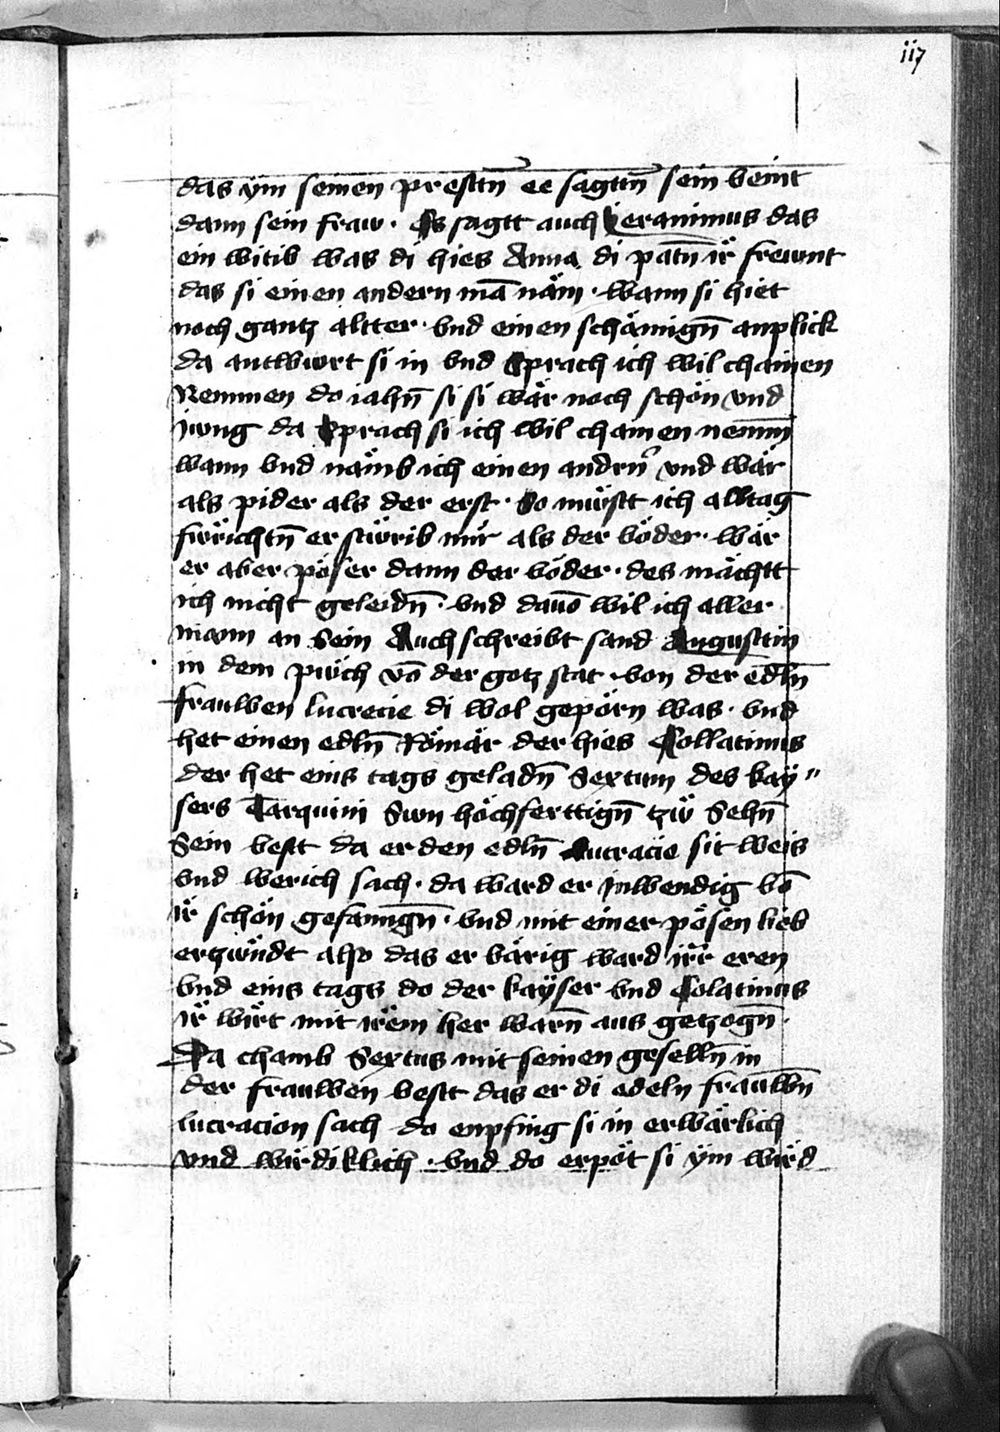 117
das ÿm seinen presttn̄ ee sagttn̄ sein veint
dann sein fraw · Es sagtt auch Jeranimus das
ein witib was di hies Anna di patn̄ ir freunt
das si einen andern mā näm · wann si hiet
noch gantz altter · vnd einen schämign̄ anplick
da antwurt si in vnd Sprach ich wil chainen
Nemmen do iahn̄ si si wär noch schön vnd
iung da Sprach si ich wil chainen nemm̄
wann vnd nämb ich einen andrn̄ vnd wär
als pider als der erst · So müestt ich alltag
fürichtn̄ er stürib mir als der voder · wär
er aber pöser dann der voder · des mächtt
ich nicht geleidn̄ · vnd dauō wil ich aller
mann an Sein Auch schreibt sand Augusttin
in dem puch vō der gotz stat · von der edln̄
frauwen lucrecie di wol geporn was · vnd
het einen edln̄ Römär der hies Collatinus
der het eins tags geladn̄ Sextum des kaÿ„
sers Tarquini Sun höchferttign̄ tzw Sehn̄
Sein vestt da er den edln̄ Lucracie sit weis
vnd werich sach · da ward er inwendig vō
ir schön gefanngn̄ · vnd mit einer pösen lieb
ertzündt also das er värig ward irr eren
vnd eins tags do der kaÿser vnd Colatinus
ir wirt mit irem her warn̄ aus getzogn̄ ·
Da chamb Sextus mit seinen geselln̄ in
der frauwen vestt das er di edeln frauwn̄
lucracion sach do enpfing si in erwärlich
vnd wirdiklich · vnd do erpöt si ÿm wird